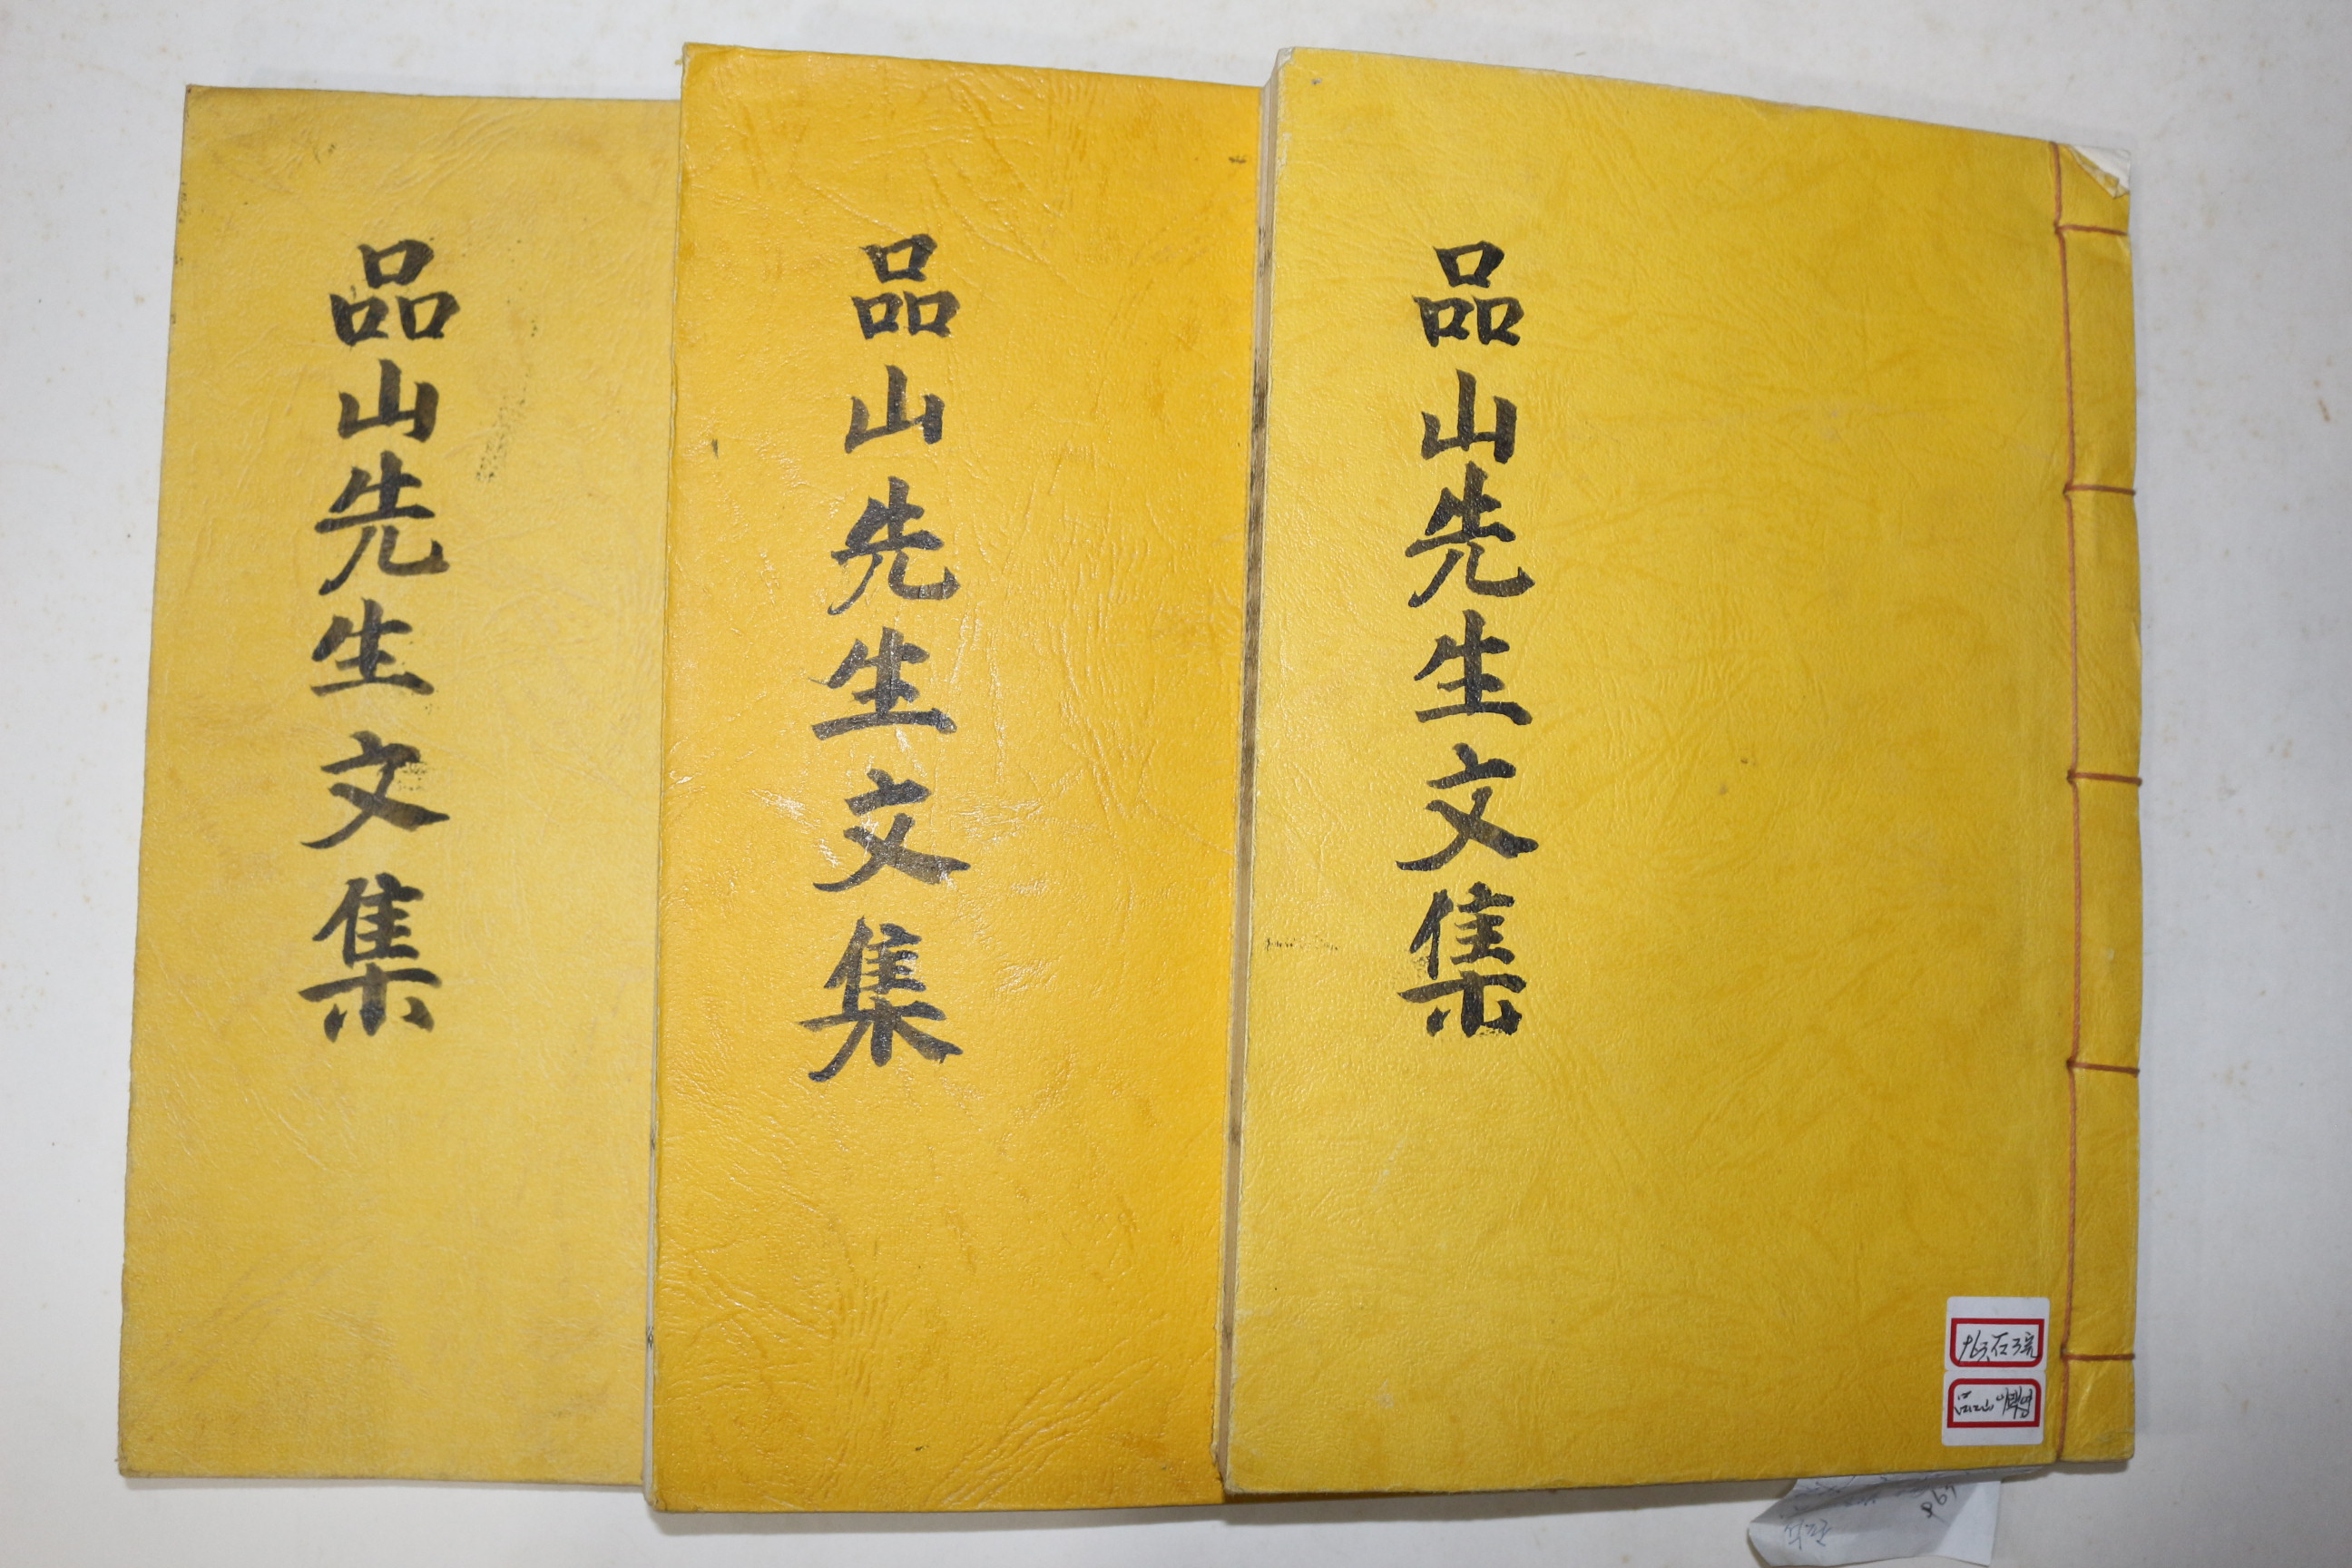 品山先生文集
品山先生文集
品山先生文集